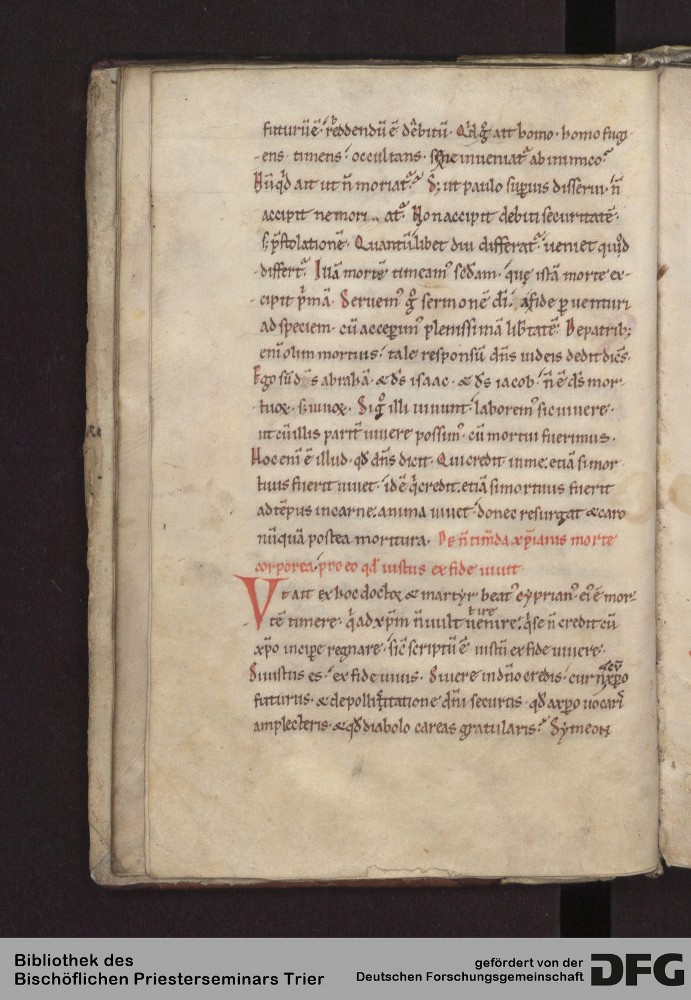 futurū ē. reddendū ē debitū. Quid g̊ ait homo. homo fugi
ens. timens. occultans. se ne inueniat᷑ ab inimico.
Nūqd ait ut n̄ moriat᷑. S; ut paulo superius disserui. n̄
accipit ne mori at᷑. Non accipit debiti securitatē.
s; p̄stolationē. Quantūlibet diu differat᷑. ueniet quod
differt᷑. Illā mortē timeam᷒ sc̄dam. quę istā mortē ex
cipit p̄mā. Seruem᷒ g̊ sermonē dī. a fide peruenturi
ad speciem. cū acceperim᷒ plenissimā lib̄tatē. De patrib;
enī olim mortuis. tale responsū dn̄s iudeis dedit dicēs.
Ego sū d̄s abrahā. & d̄s isaac. & d̄s iacob. n̄ ē d̄s mor
tuoꝝ. s; uiuoꝝ. Si g̊ illi uiuunt. laborem᷒ sic uiuere.
ut cū illis parit̄ uiuere possim᷒. cū mortui fuerimus.
Hoc enī ē illud. qd dn̄s dicit. Qui credit in me. etiā si mor
tuus fuerit uiuet. id ē q̄ credit. etiā si mortuus fuerit
ad tēpus in carne. anima uiuet. donec resurgat & caro
nūquā postea moritura. De n̄ timēda xp̄ianis morte
corporea. pro eo qd iustus ex fide uiuit.
Vt ait ex hoc doctor & martyr beat᷒ cyprian᷒. ei᷒ ē mor
tē timere. q̄ ad xp̄m n̄ uult ire. q̄ se n̄ credit cū
xp̄o incipe regnare. sic̄ scriptū ē iustū ex fide uiuere.
Si iustus es. ex fide uiuis. Si uere in dn̄o credis. cur n̄ cū xp̄o
futurus. & de pollicitatione dn̄i securus. qd a xp̄o uocaris
amplecteris. & qd diabolo careas gratularis. Symeon
Bibliothek des
Bischöflichen Priesterseminars Trier
gefördert von der
Deutschen Forschungsgemeinschaft
DFG